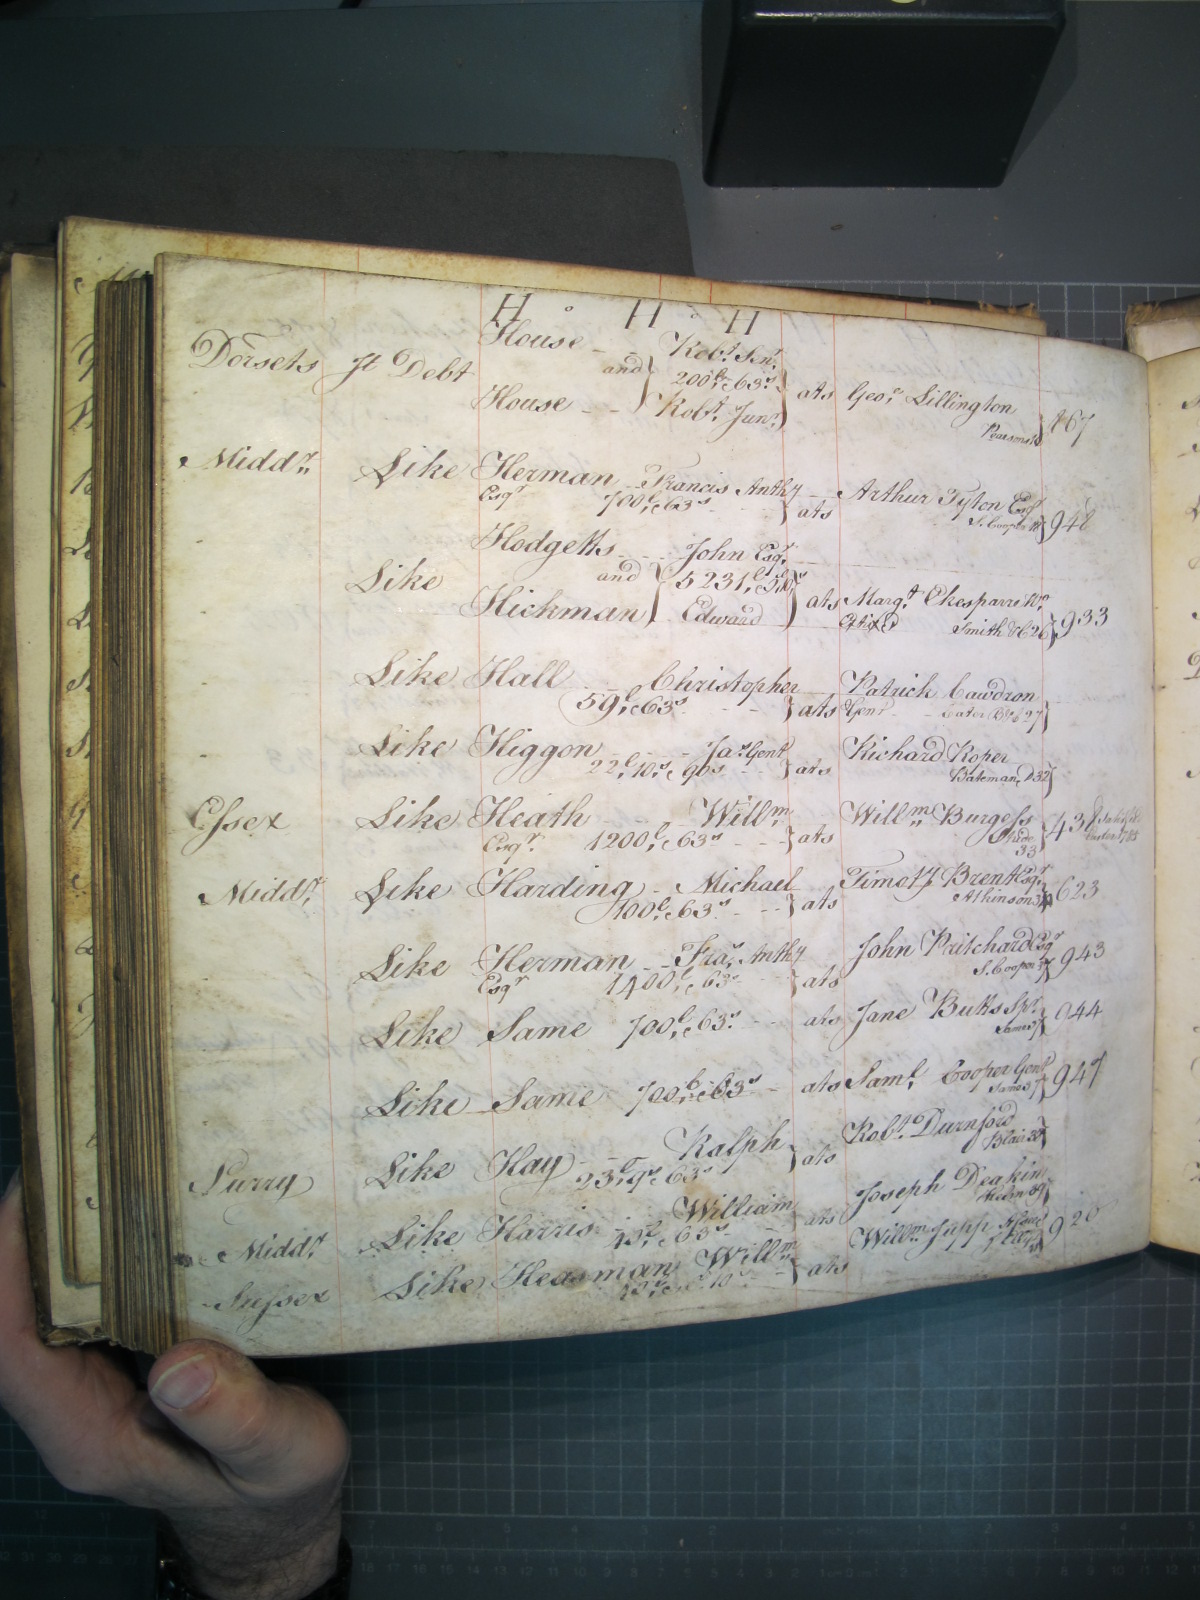 H H H
Dorsets Jt Debt House and House Robt. Senr. 200l, & 63s Robt. Junr. ats Geo: Lillington Pearson 467
Middx. Like Herman Francis Anthy
Esqr 700l, & 63s ats Arthur Tyton Esqr S. Cooper 948
Like Hodgetts and Hickman John Esqr. 5231l, Edward ats Margt. Wr. Smith 26 933
Like Hall Christopher
59l, & 63s ats Patrick Cawdron Gent 27
Like Higgon Jas Gent
22l, 10s, & 90s ats Richard Roper Bateman 32
Essex Like Heath Willm
Esqr. 1200l, & 63s ats Willm Burgess 33 438
Middx. Like Harding Michael
100l, & 63s ats Timoty Brent Esqr. Atkinson 623
Like Herman Fras. Anthy
Esqr 1400l, & 63s ats John Pritchard Esqr S. Cooper 943
Like Same 700l, & 63s ats Jane Butts Spr. Same 944
Like Same 700l, & 63s ats Saml. Cooper Gent Same 947
Surry Like Hay Ralph
23l, 9s, & 63s ats Robt. Durnford Blair
Middx. Like Harris William
& 63s ats Joseph Deakin
Sussex Like Heasman Willm
ats Willm Jupp 920